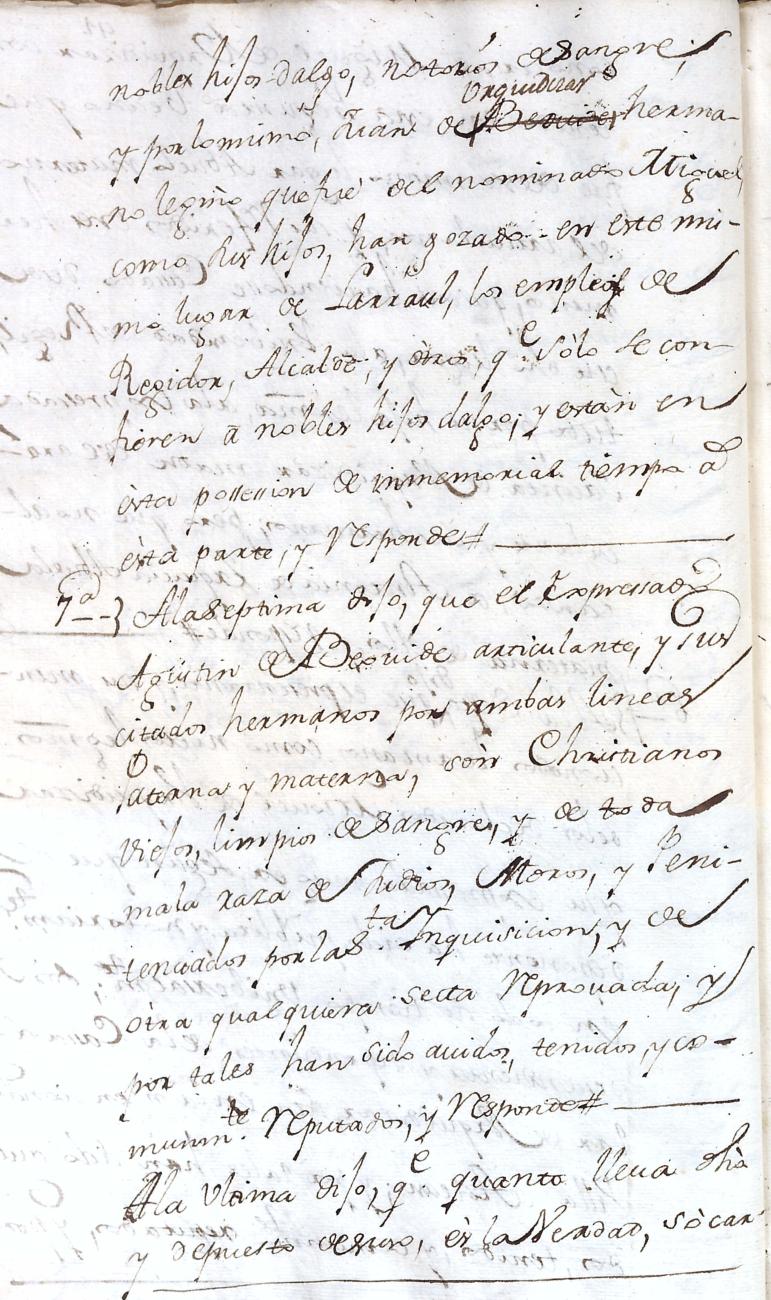 nobles hijos-dalgo, notorios de Sangre,
Urquidizar
y por lo mismo, Juan de Beguide, herma-
no legmo que fué del nominado Miguel,
como sus hijos, han gozado en este mi-
mo lugar de Larraul, los empleos de
Regidor, Alcalde, y otros, qe sólo se con-
fieren â nobles hijos dalgo; y están en
ésta possession de inmemorial tiempo â
ésta parte, y responde#
7a} A la septima dijo, que el Expressado
Agustin de Beguide articulante, y sus
citados hermanos por ambas lineas
Paterna y materna, són Christianos
Viejos, limpios de Sangre, y de toda
mala raza de Judios, Moros, y Peni-
tenciados por la Sta Inquisicion, y de
ôtra qualquiera secta reprouada; y
por tales han sido auidos, tenidos, y co-
munmte. reputados, y responde#
A la Ultima dijo, qe quanto lleua dho
y depuesto de suso, és la Verdad, só car-